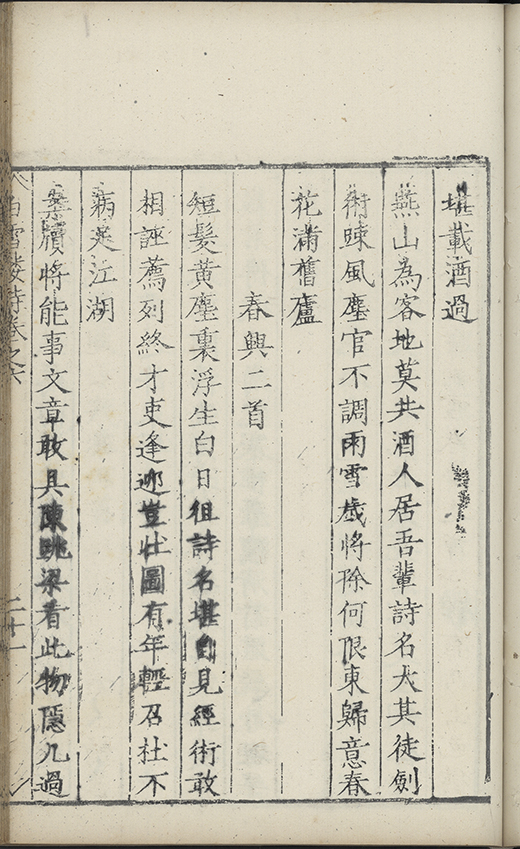 堪載酒過
燕山為客地莫共酒人居吾輩詩名大其徒劍
術踈風塵官不調雨雪歲將除何限東歸意春
花滿舊廬
春興二首
短髮黃塵裏浮生白日徂詩名堪自見經術敢
相誣薦列終才吏逢迎豈壯圖有年輕召杜不
病滿江湖
案牘將能事文章敢具陳跳梁看此物隱几過
白雪樓詩卷之六
二十一